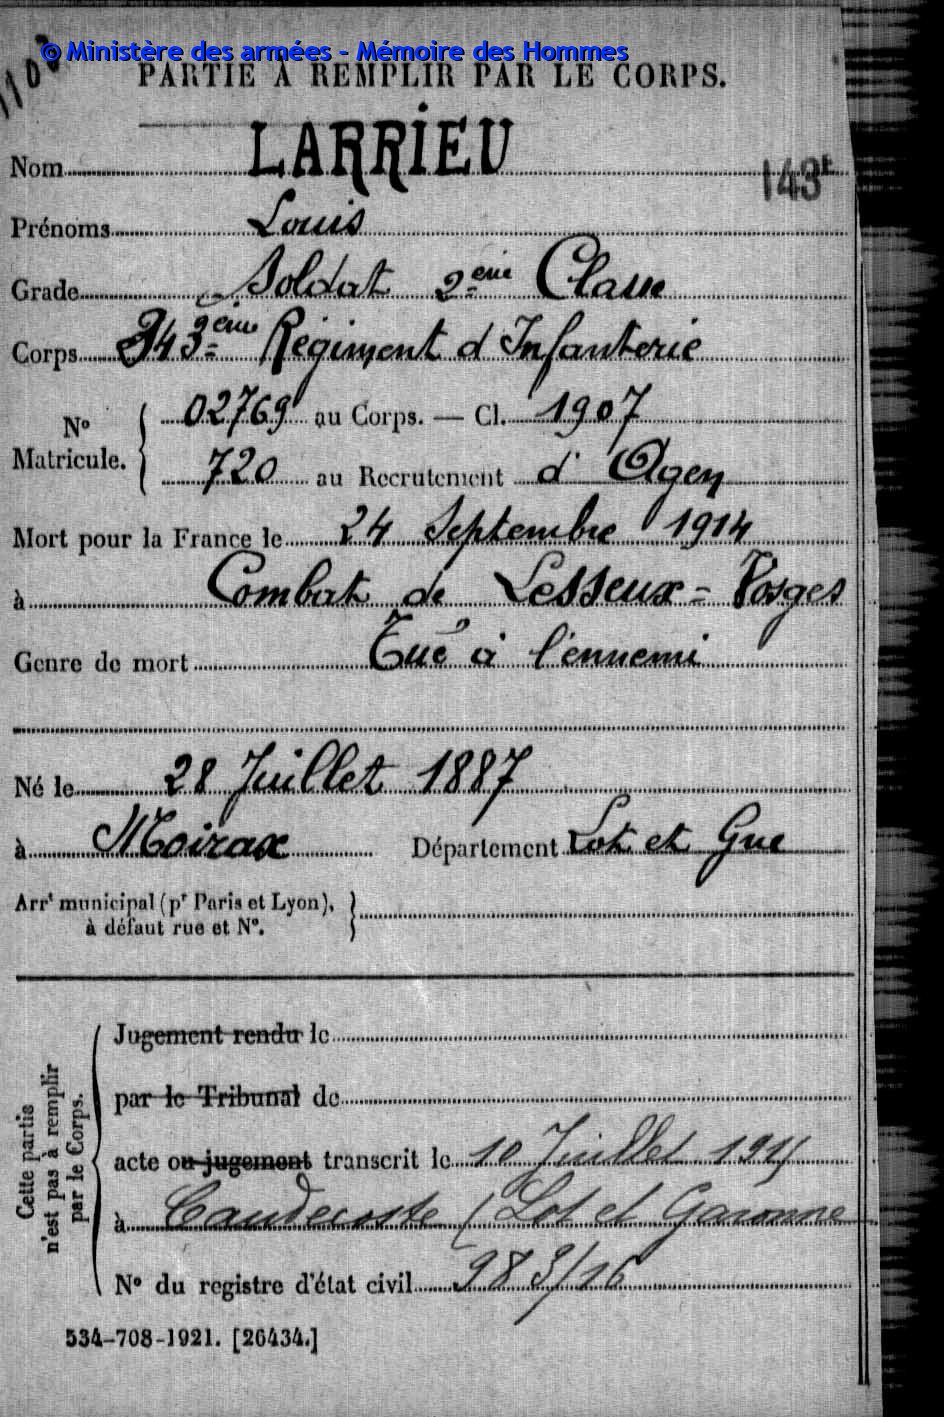 © Ministère des armées - Mémoire des Hommes
PARTIE À REMPLIR PAR LE CORPS.
Nom LARRIEU
143E
Prénoms Louis
Grade Soldat 2ème Classe
Corps 343ème Régiment d'Infanterie
N° Matricule. 02769 au Corps. — Cl. 1907
720 au Recrutement d'Agen
Mort pour la France le 24 Septembre 1914
à Combat de Lesseux - Vosges
Genre de mort Tué à l'ennemi
Né le 28 Juillet 1887
à Moirax Département Lot et Gne
Arrt municipal (pr Paris et Lyon),
à défaut rue et N°.
Cette partie
n'est pas à remplir
par le Corps.
Jugement rendu le
par le Tribunal de
acte ou jugement transcrit le 10 Juillet
à Caudecoste (Lot et Garonne
N° du registre d'état civil 983/16
534-708-1921. [26434.]